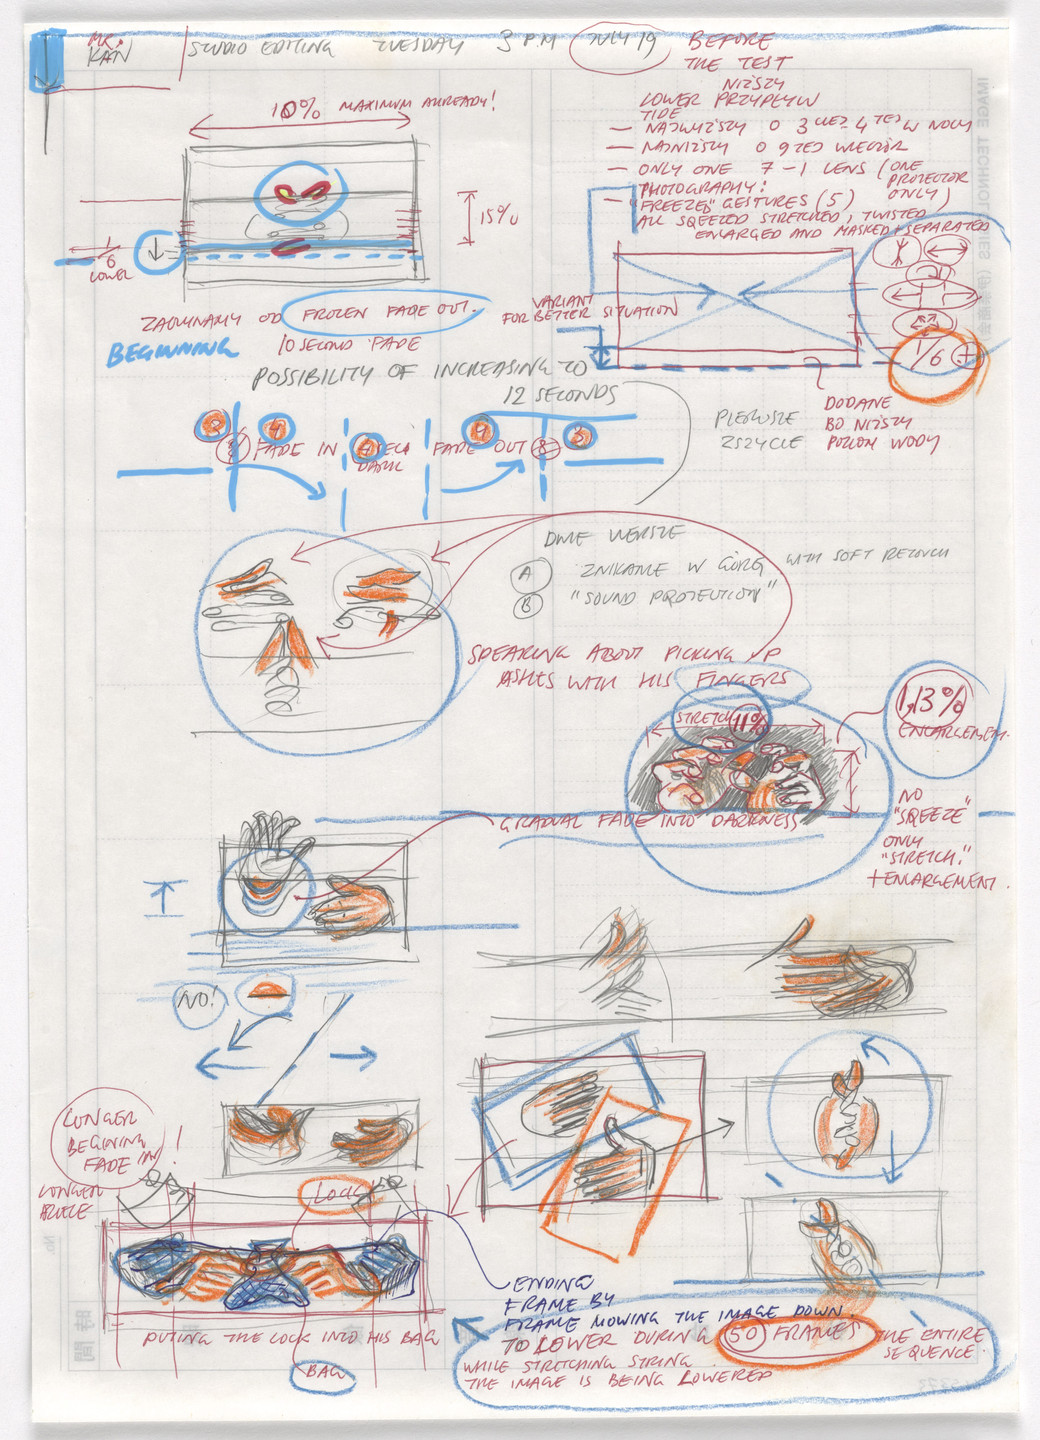 MR. KAN
STUDIO EDITING TUESDAY 3 P.M JULY 19
BEFORE
THE TEST
NIŻSZY
LOWER PRZYPŁYW
TIDE
— NAJWYŻSZY O 3
— NAJNIŻSZY O 9 WIECZÓR
— ONLY ONE 7-1 LENS (ONE
PROJECTOR
ONLY)
PHOTOGRAPHY:
— "FREEZED" GESTURES (5)
ALL SQEEZED STRETCHED, TWISTED
ENLARGED AND MASKED + SEPARATED
10% MAXIMUM ALREADY!
15%
1/6
LOWER
1/6 +
ZACZYNAMY OD FROZEN FADE OUT.
BEGINNING
10 SECOND FADE
VARIANT
FOR BETTER SITUATION
POSSIBILITY OF INCREASING TO
12 SECONDS
DODANE
BO NIŻSZY
POZIOM WODY
PIERWSZE
ZSZYCIE
FADE IN
DARK
FADE OUT
DWIE WERSJE
A ZNIKANIE W GÓRĘ WITH SOFT RETOUCH
B "SOUND PROJECTION"
SPEAKING ABOUT PICKING UP
ASHES WITH HIS FINGERS
STRETCH 11%
1,13%
ENLARGEMENT.
NO
"SQEEZE"
ONLY
"STRETCH."
+ENLARGEMENT.
GRADUAL FADE INTO DARKNESS
NO!
LONGER
BEGINING
FADE IN !
LONGER
LOCK
PUTING THE LOCK INTO HIS BAG
BAG
ENDING
FRAME BY
FRAME MOWING THE IMAGE DOWN.
TO LOWER DURING 50 FRAMES THE ENTIRE
SEQUENCE.
WHILE STRETCHING STRING
THE IMAGE IS BEING LOWERED